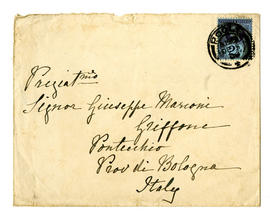 Pregiatmo
Signor Giuseppe Marconi
Griffone
Pontecchio
Prov di Bologna
Italy